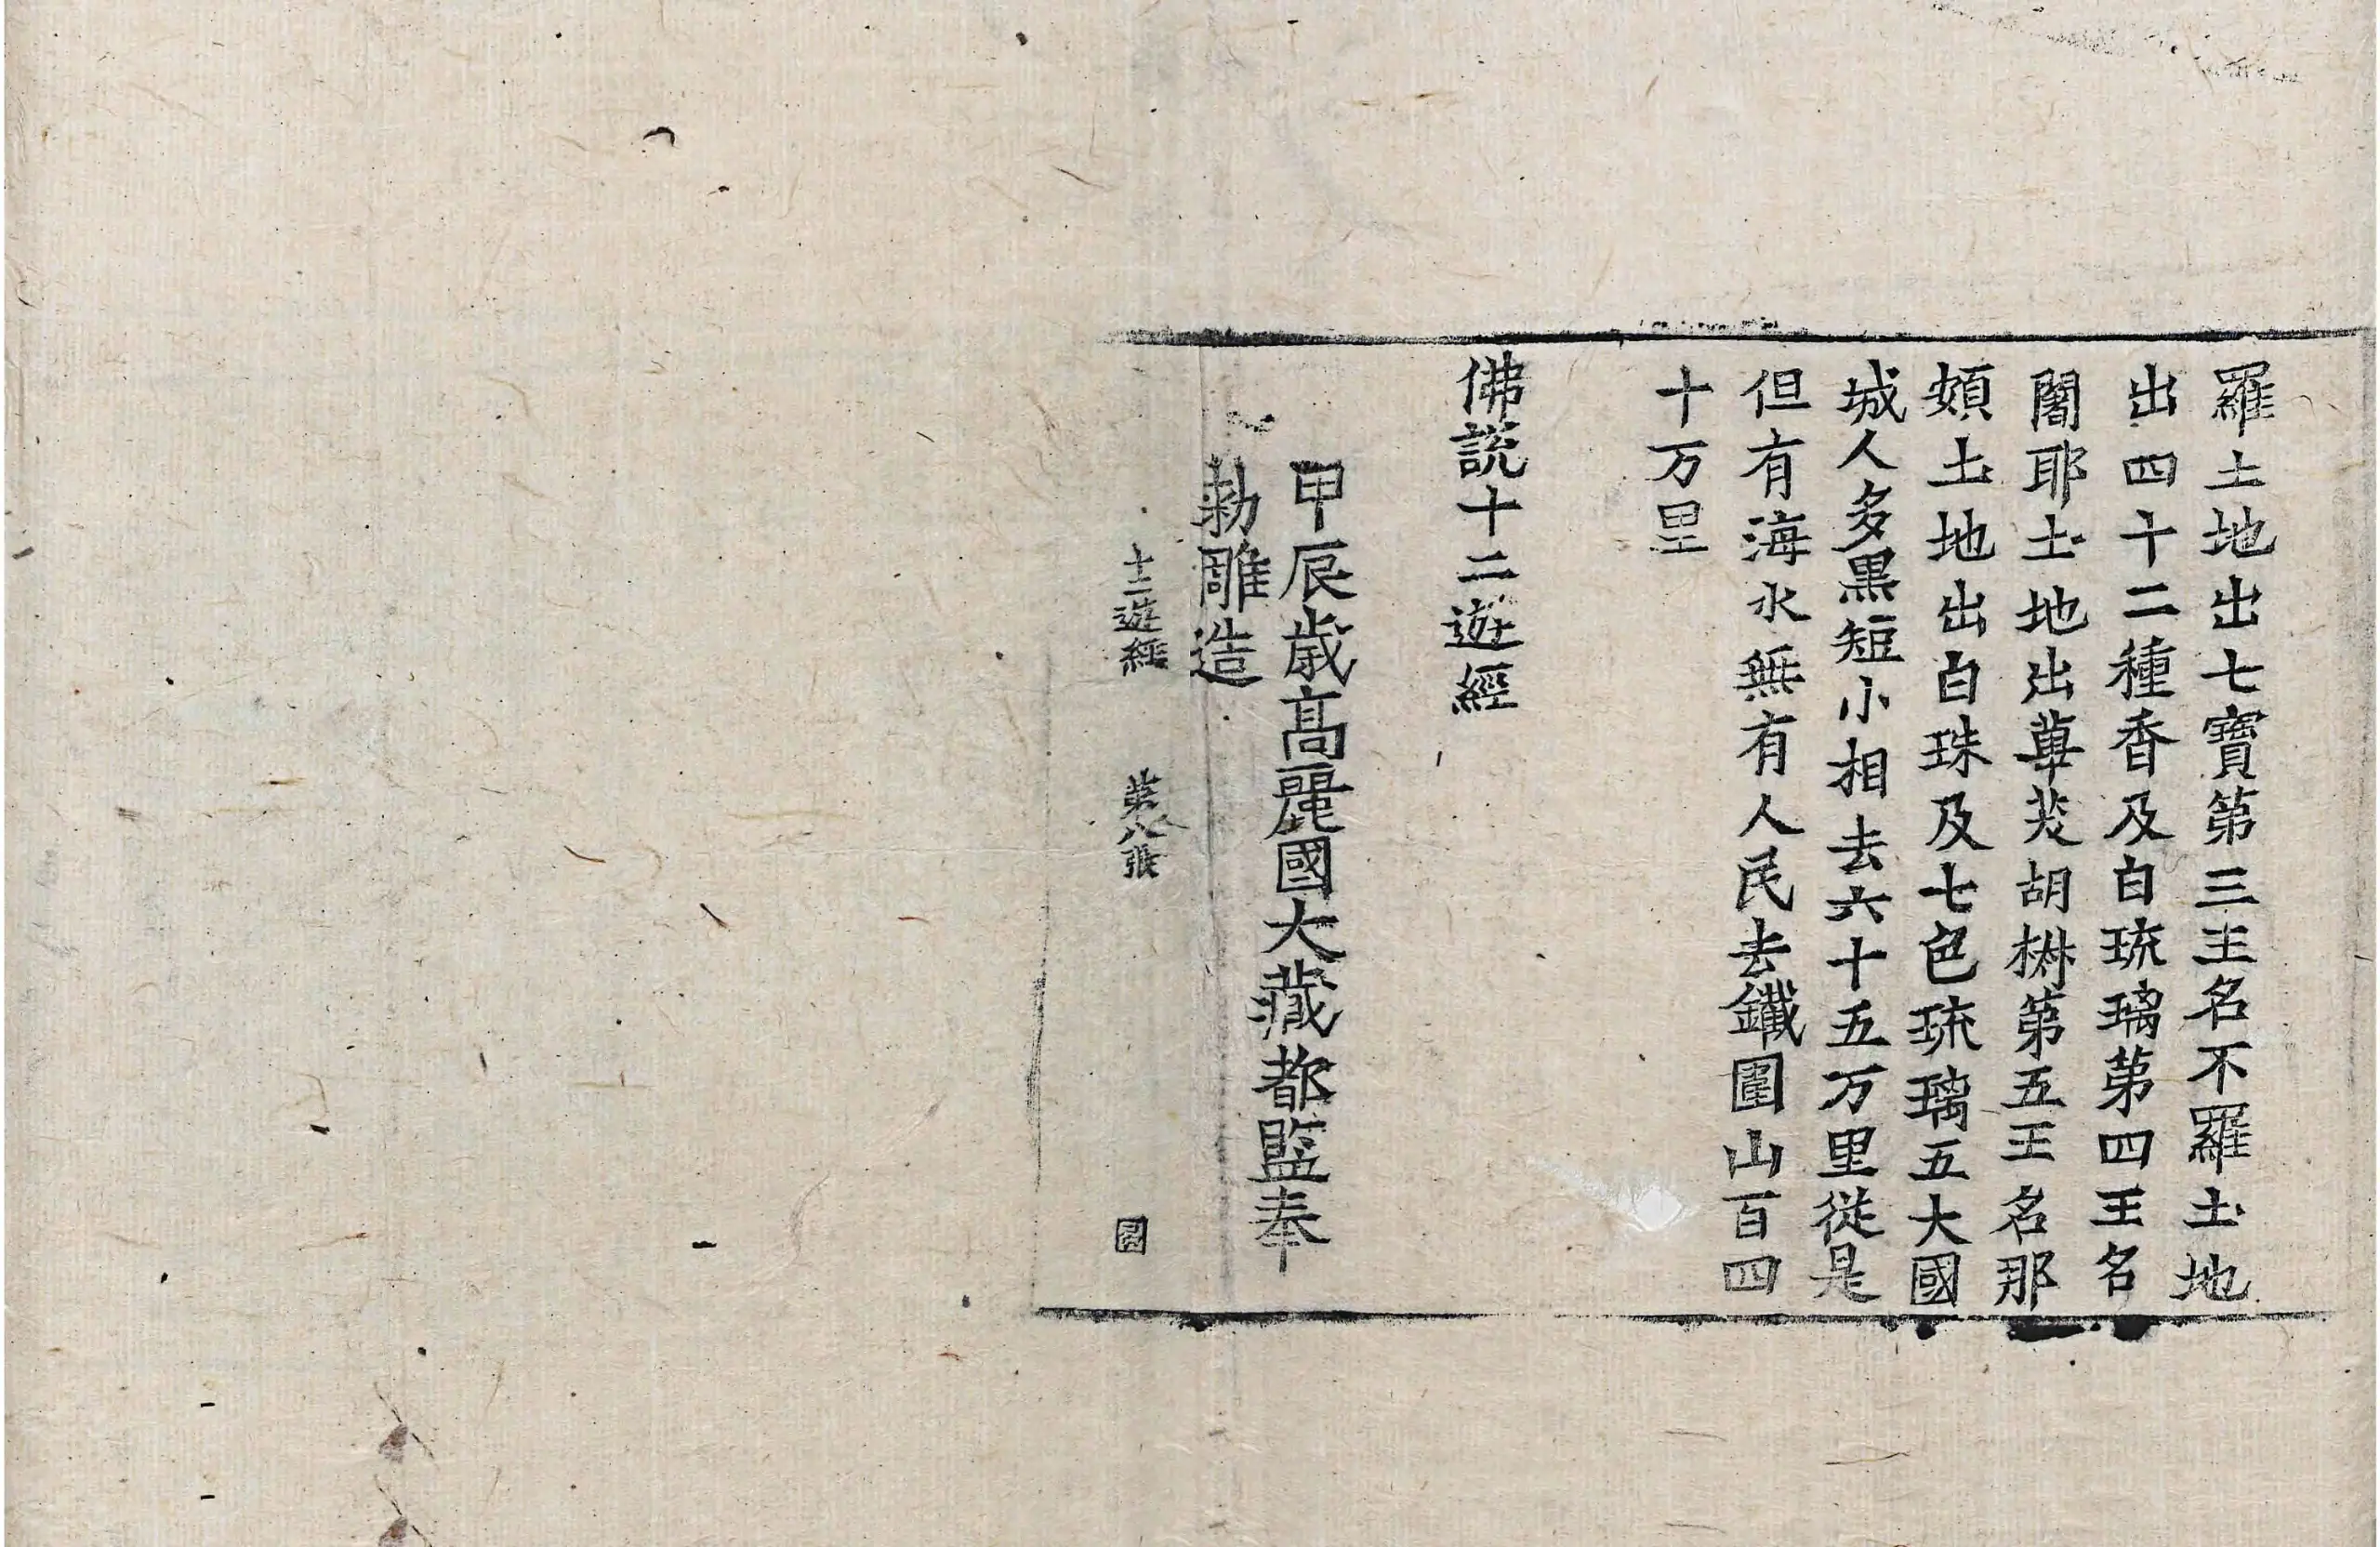 羅土地出七寶第三王名不羅土地
出四十二種香及白琉璃苐四王名
闍耶土地出蓽茇胡椒第五王名那
頞土地出白珠及七色琉璃五大國
城人多黒短小相去六十五万里従是
但有海水無有人民去鐵圍山百四
十万里
佛說十二遊經
甲辰歳髙麗國大藏都監奉
勅雕造
十二遊經 苐八張